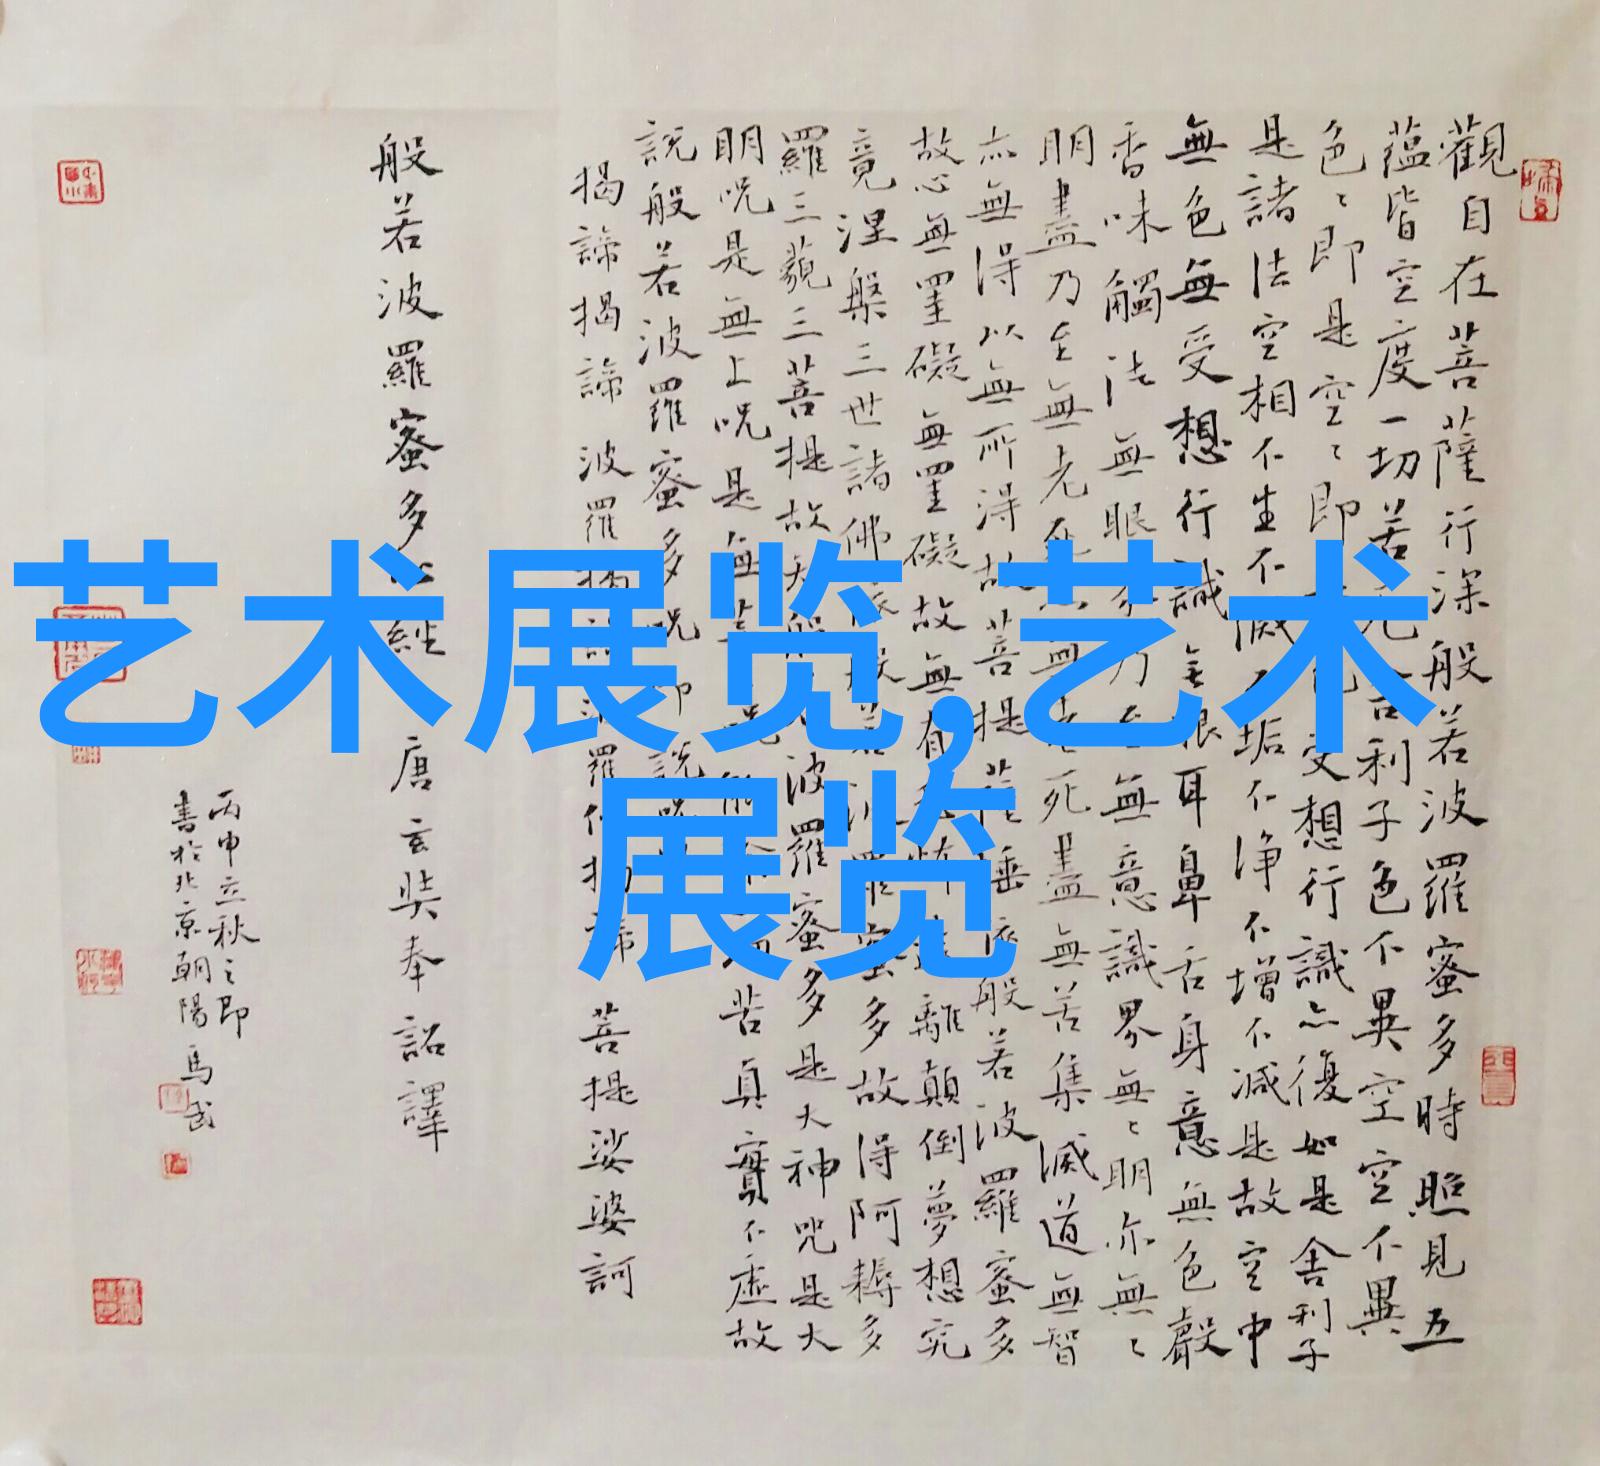 艺术展览,艺术
展览
觀自在菩薩行深般若波羅蜜多時照見五
蘊皆空度一切苦厄舍利子色不異空空不異
色〻即是空〻即色受想行識亦復如是舍利子
是諸法空相不生不滅不垢不淨不增不減是故空中
無色無受想行識無眼耳鼻舌身意無色聲
香味觸法無眼界乃至無意識界無〻明亦無〻
明盡乃至無老死亦無老死盡無苦集滅道無智
亦無得以無所得故菩提薩埵依般若波羅蜜多
故心無罣礙無罣礙故無有恐怖遠離顛倒夢想究
竟涅槃三世諸佛依般若波羅蜜多故得阿耨多
羅三藐三菩提故知般若波羅蜜多是大神咒是大
明呪是無上呪是無等呪能除切苦真實不虛故
說般若波羅蜜多呪即說呪
揭諦揭諦波羅揭諦波羅僧揭諦菩提娑婆訶
般若波羅蜜多心經 唐玄奘奉詔譯
丙申立秋之即
書於北京朝陽馬武